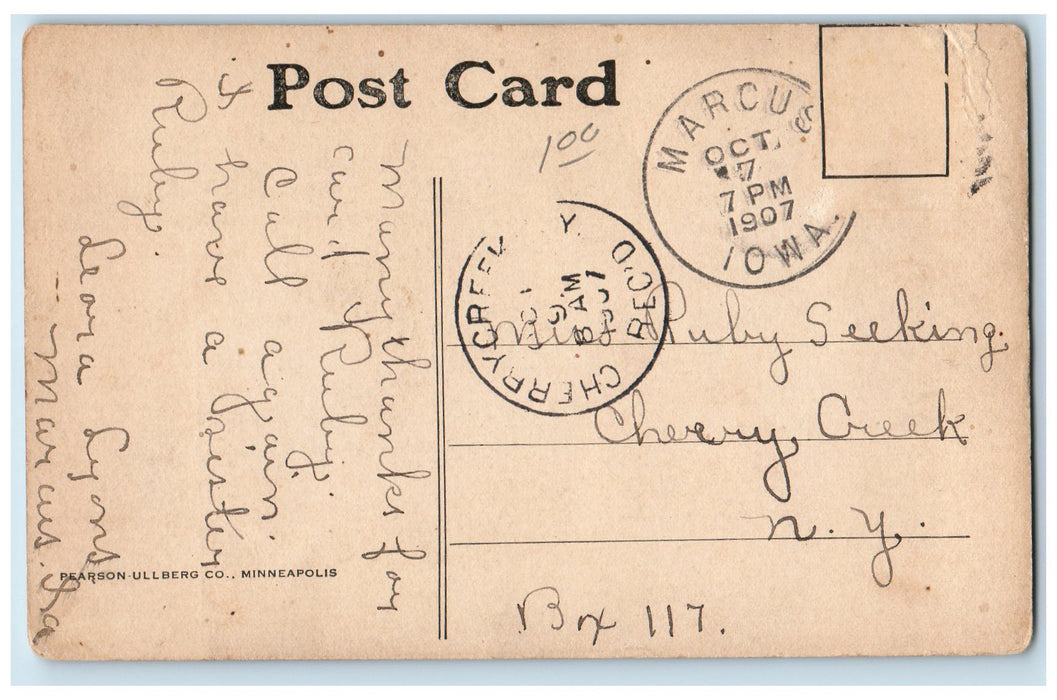 Post Card
1 00
MARCUS
OCT.
7
7 PM
1907
IOWA.
CHERRY CREEK
Y.
9
8 AM
REC'D
Many thanks for
card Ruby.
Call again.
I have a sister
Ruby.
Leora Lyons
Marcus. Ia
Miss Ruby Seeking.
Cherry Creek
N. Y.
Box 117.
PEARSON-ULLBERG CO., MINNEAPOLIS